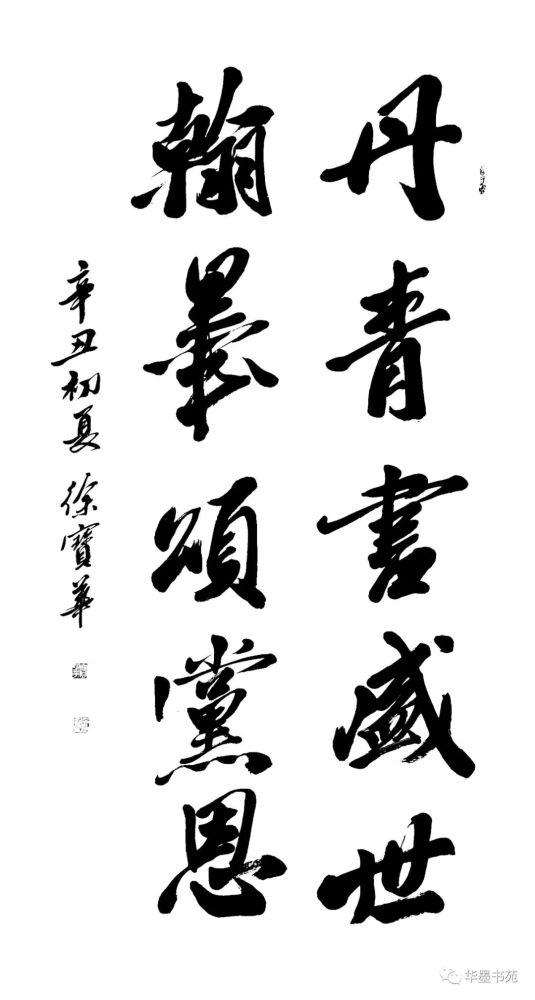 丹青書盛世
翰墨頌黨恩
辛丑初夏 徐寶華
华墨书苑